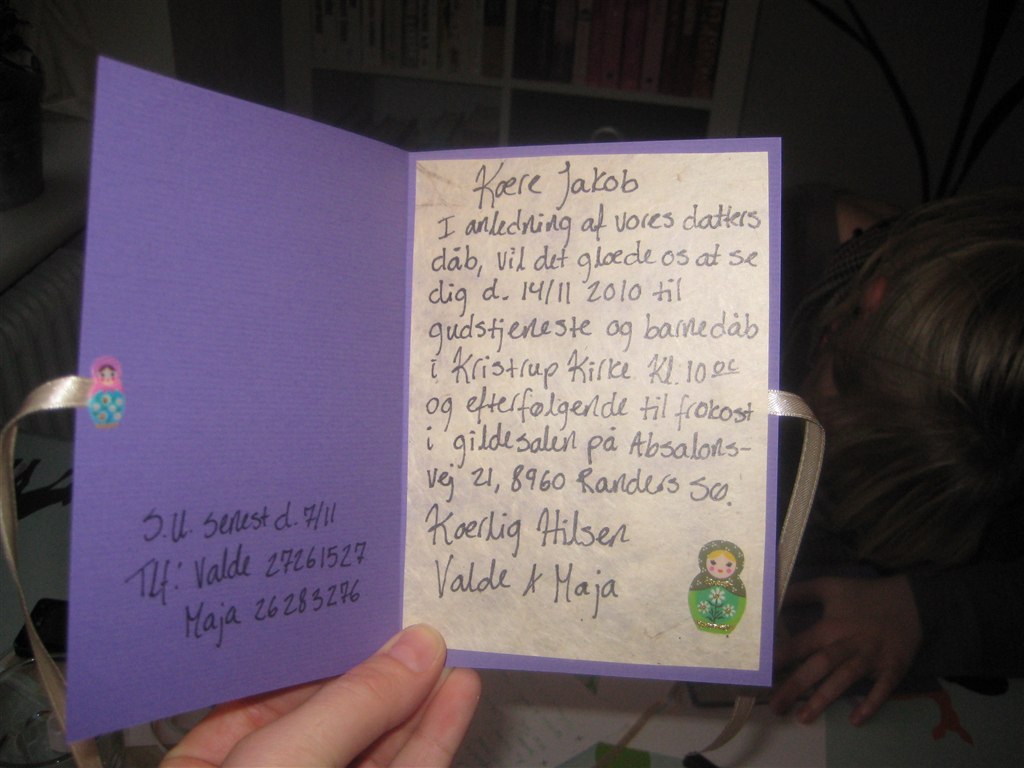 S.U. senest d. 7/11
Tlf: Valde 27261527
Maja 26283276
Kære Jakob
I anledning af vores datters
dåb, vil det glæde os at se
dig d. 14/11 2010 til
gudstjeneste og barnedåb
i Kristrup Kirke Kl. 10 00
og efterfølgende til frokost
i gildesalen på Absalons-
vej 21, 8960 Randers SØ.
Kærlig Hilsen
Valde & Maja